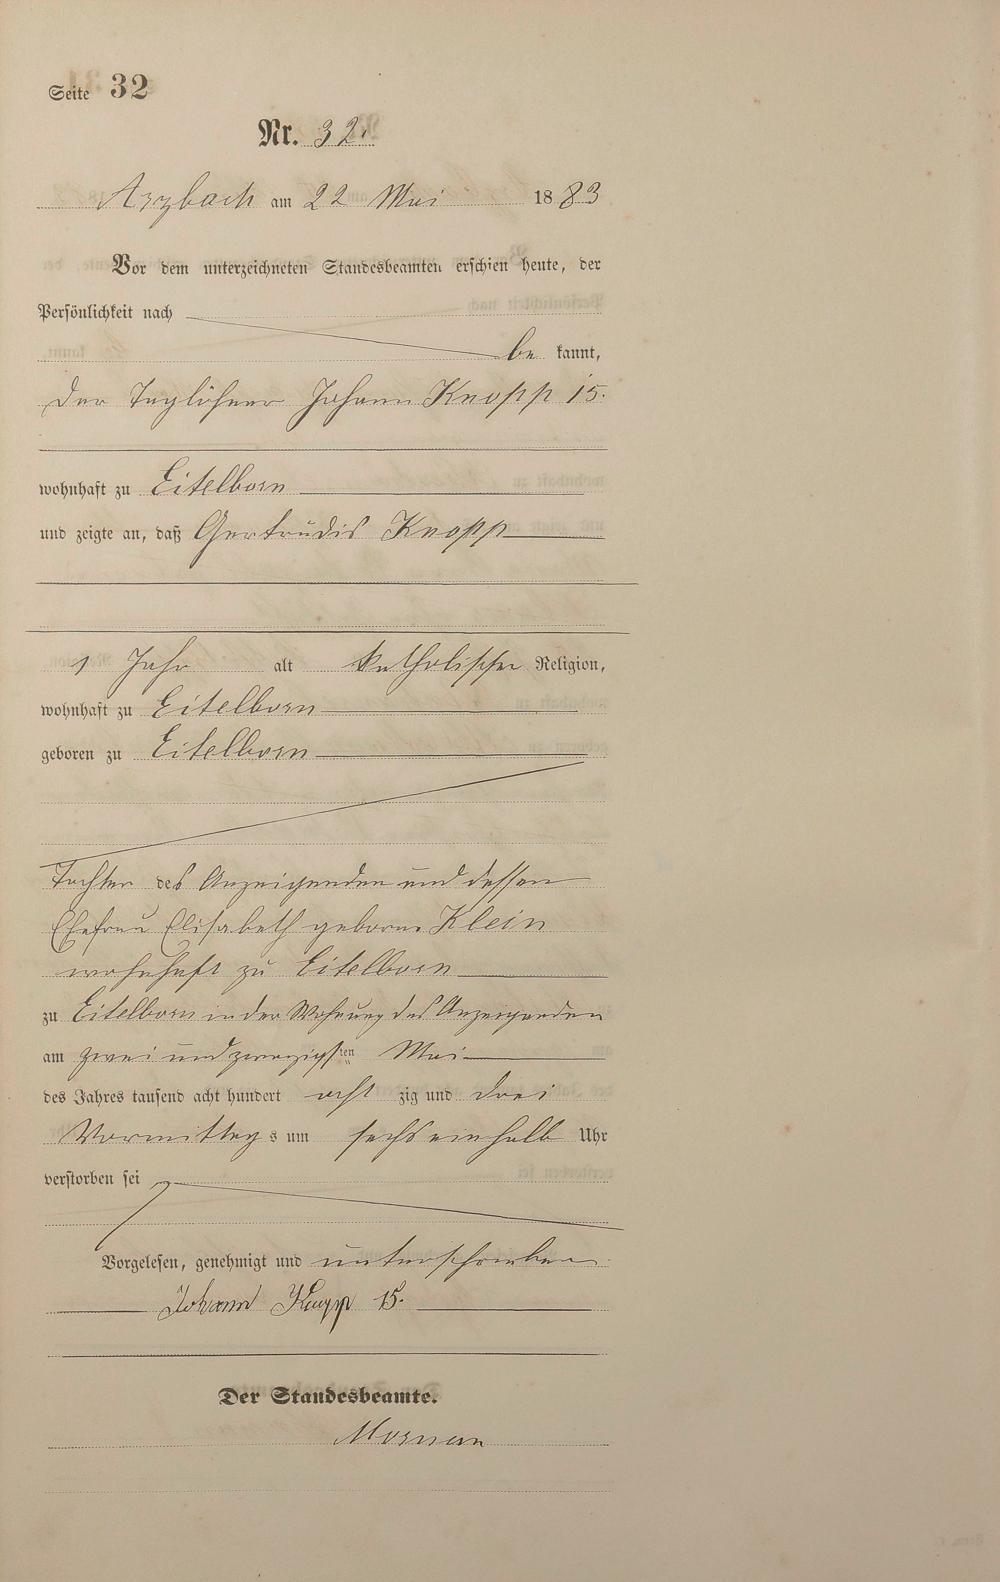 Seite 32
Nr. 32.
Arzbach am 22 Mai 1883
Vor dem unterzeichneten Standesbeamten erschien heute, der
Persönlichkeit nach
be kannt,
der Taglöhner Johann Knopp 15.
wohnhaft zu Eitelborn
und zeigte an, daß Gertrudis Knopp
1 Jahr alt katholischer Religion,
wohnhaft zu Eitelborn
geboren zu Eitelborn
Tochter des Anzeigenden und dessen
Ehefrau Elisabeth geborne Klein
wohnhaft zu Eitelborn
zu Eitelborn in der Wohnung des Anzeigenden
am zwei und zwanzigsten Mai
des Jahres tausend acht hundert acht zig und drei
Vormittag s um sechs einhalb Uhr
verstorben sei
Vorgelesen, genehmigt und unterschrieben
Johann Knopp 15.
Der Standesbeamte.